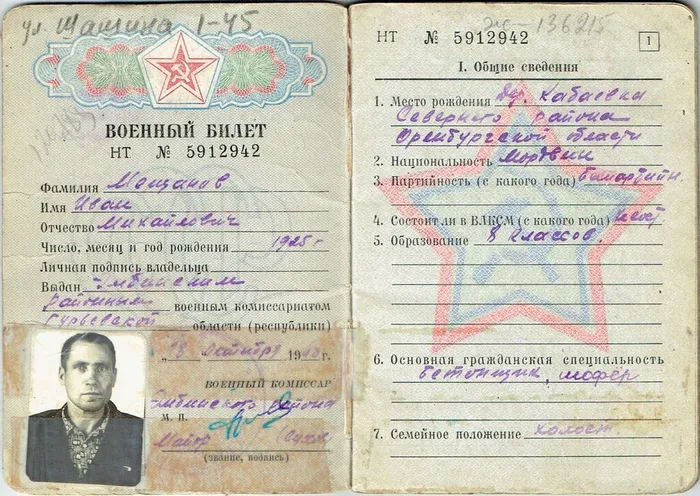 ул. Шашина 1-45
ВОЕННЫЙ БИЛЕТ
НТ № 5912942
Фамилия Мещанов
Имя Иван
Отчество Михайлович
Число, месяц и год рождения 1925 г
Личная подпись владельца
Выдан Эмбинским
районным военным комиссариатом
Гурьевской области (республики)
октября 19 г.
ВОЕННЫЙ КОМИССАР
Эмбинского района
М. П.
Майор
(звание, подпись)
136215
НТ № 5912942
1
I. Общие сведения
1. Место рождения Дер. Кабаевка
Северного района
Оренбургской области
2. Национальность Мордвин
3. Партийность (с какого года)
4. Состоит ли в ВЛКСМ (с какого года)
5. Образование 8 классов.
6. Основная гражданская специальность
бетонщик, шофёр
7. Семейное положение холост.